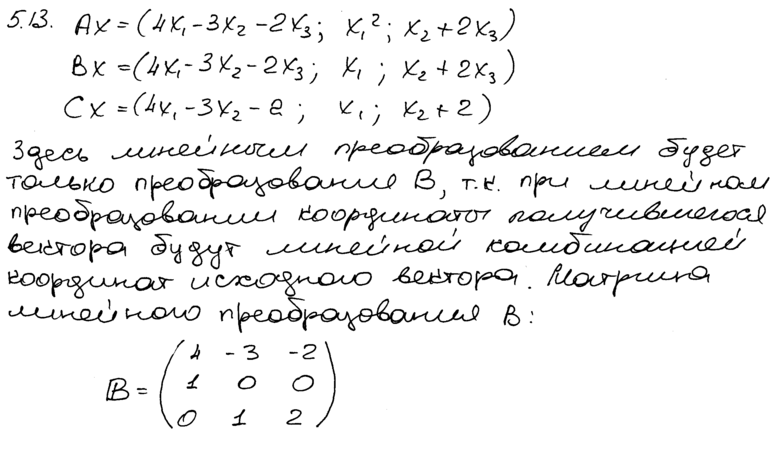 5.13. Ax = (4x₁ - 3x₂ - 2x₃; x₁²; x₂ + 2x₃)
Bx = (4x₁ - 3x₂ - 2x₃; x₁; x₂ + 2x₃)
Cx = (4x₁ - 3x₂ - 2; x₁; x₂ + 2)
Здесь линейным преобразованием будет
только преобразование B, т.к. при линейном
преобразовании координаты получившегося
вектора будут линейной комбинацией
координат исходного вектора. Матрица
линейного преобразования B:
4 -3 -2
B = 1 0 0
0 1 2